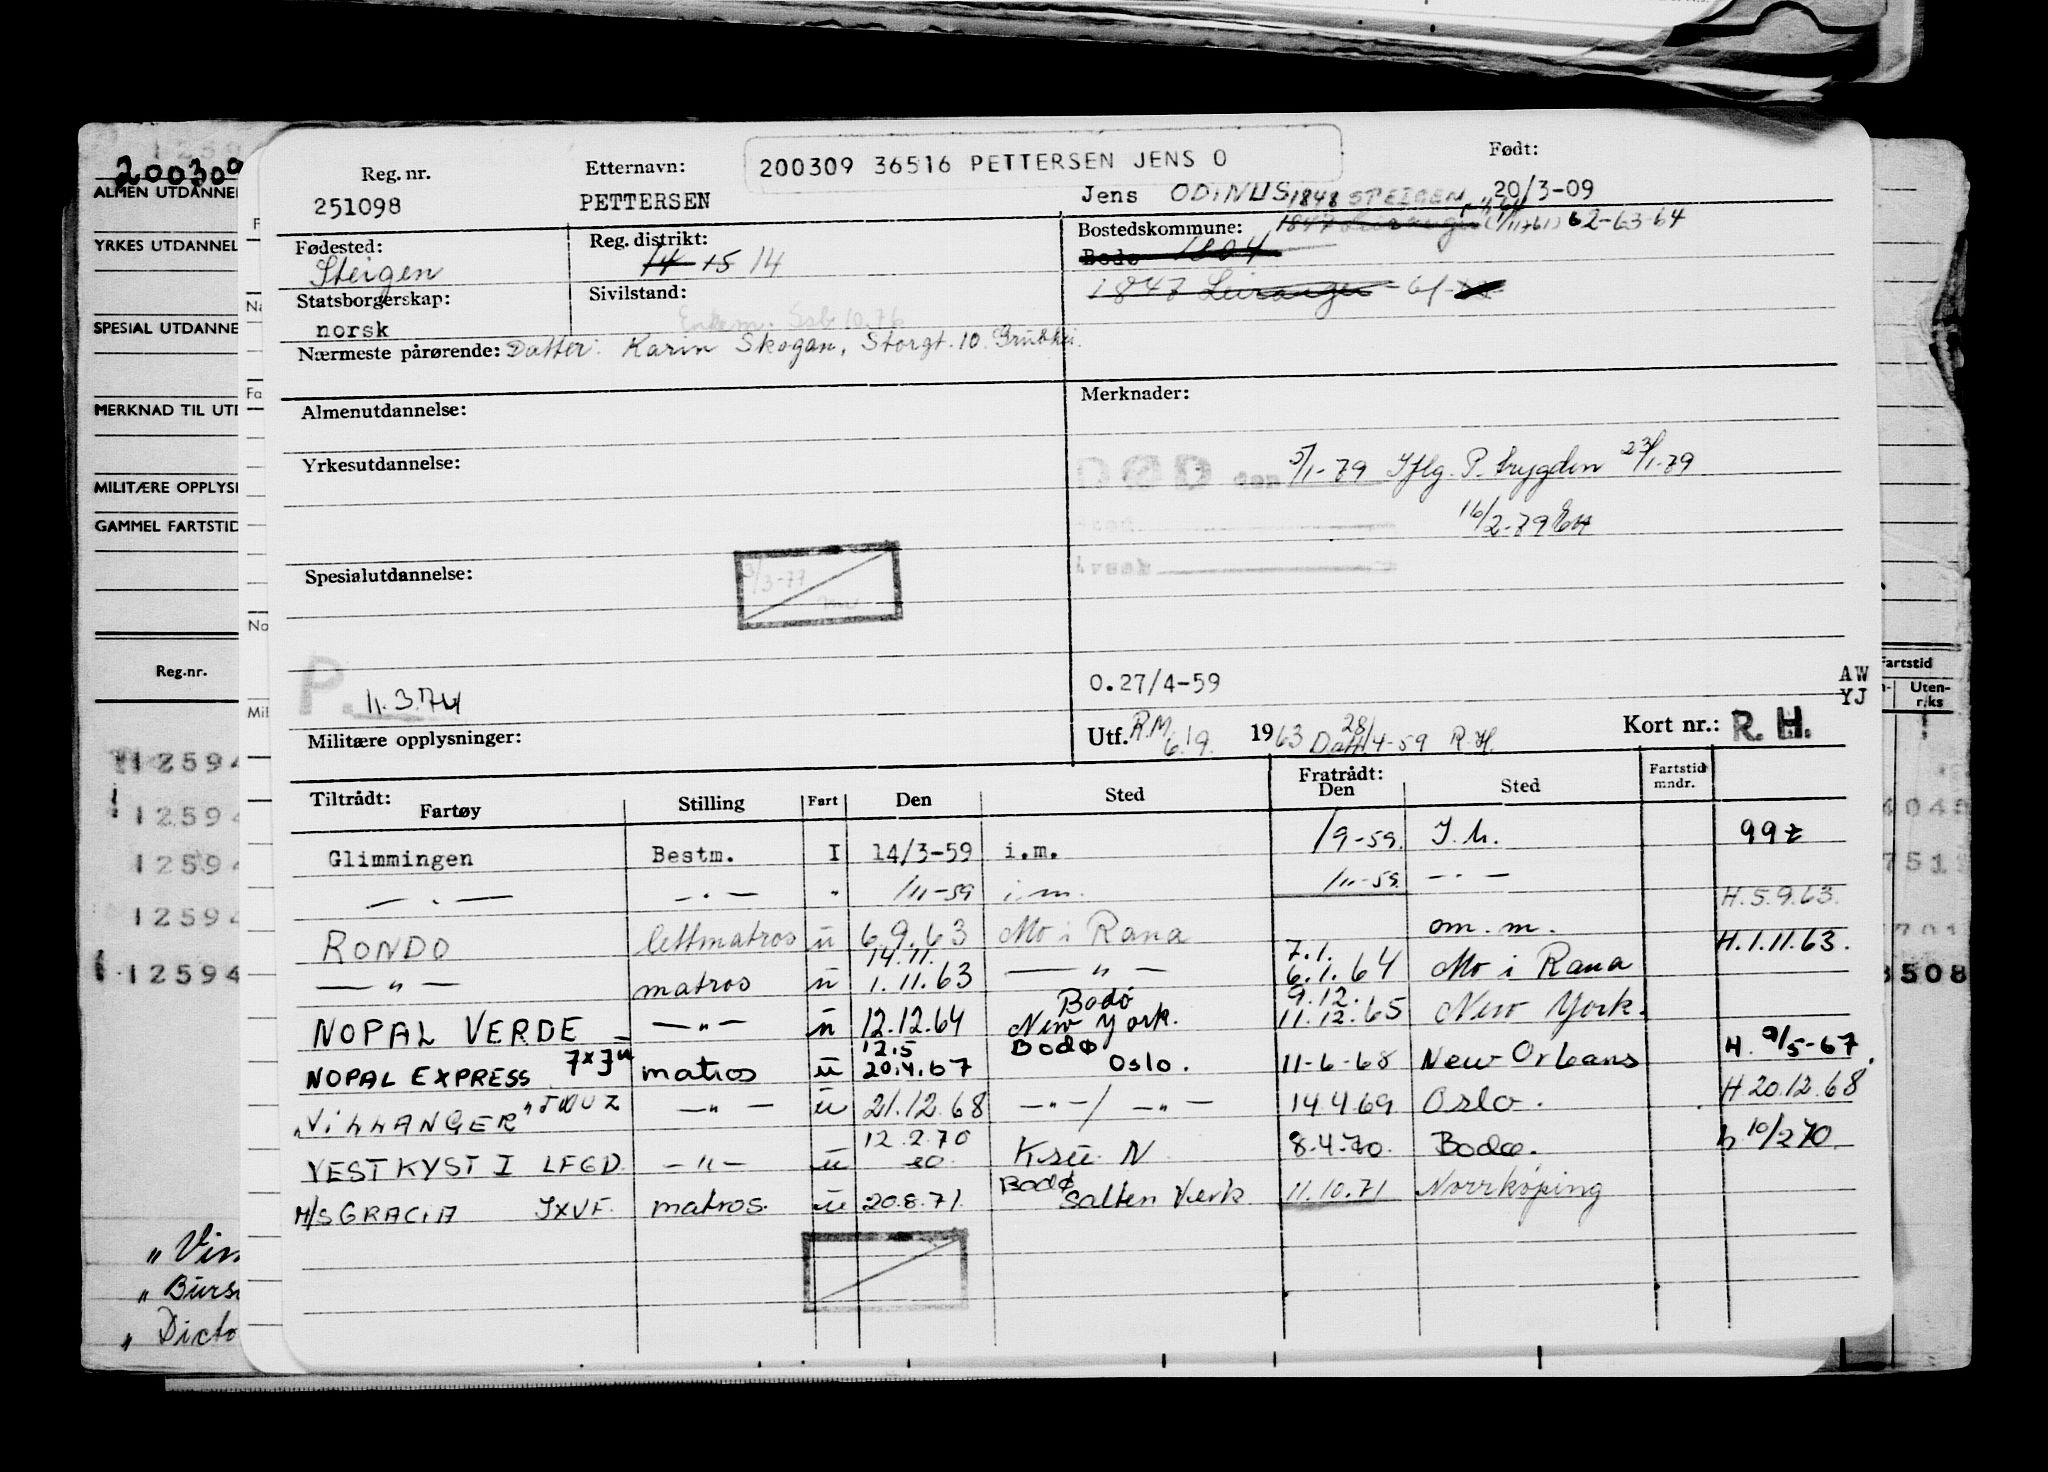 200309
ALMEN UTDANNEL
YRKES UTDANNEL
SPESIAL UTDANNE
MERKNAD TIL UTI
MILITÆRE OPPLYSI
GAMMEL FARTSTID
Reg.nr.
12594
12594
12594
12594
12594
„ Vin
„ Burs
„ Dicto
Reg. nr.
251098
Etternavn:
PETTERSEN
200309 36516 PETTERSEN JENS O
Jens ODINUS
Født:
20/3-09
1848 STEIGEN
Fødested:
Steigen
Reg. distrikt:
14 15 14
Bostedskommune:
1847 Leiranger 62-63-64
Bodø 1804
1847 Leiranger - 61-
Statsborgerskap:
norsk
Sivilstand:
Enkem.
Nærmeste pårørende: Datter: Karin Skogan, Storgt. 10.
Almenutdannelse:
Merknader:
Yrkesutdannelse:
DØD den 5/1-79 Iflg. P. trygden 23/1-79
16/2-79
Årsak
Spesialutdannelse:
3/3-77
P. 11.3.74
0.27/4-59
AW
YJ
Militære opplysninger:
Utf. R.M. 6/9. 1963 28/4-59 R.H.
Kort nr.: R. H.
Fartstid
Uten-
riks
Tiltrådt: Fartøy Stilling Fart Den Sted Fratrådt: Den Sted Fartstid mndr.
Glimmingen Bestm. I 14/3-59 i.m. /9-59. I.m. 99
— . — — . — " /11-59 i.m. /11-59. — . — H. 5.9.63.
RONDO lettmatros u 6.9.63 Mo i Rana om. m.
— " — matros u 14.11. 1.11.63 — " — 7.1. 6.1.64 Mo i Rana H. 1.11.63.
NOPAL VERDE — " — u 12.12.64 Bodø New York. 9.12. 11.12.65 New York.
NOPAL EXPRESS matros u 12.5 20.4.67 Bodø Oslo. 11-6-68 New Orleans H. 9/5-67
„VILLANGER" — " — u 21.12.68 — " — / — " — 14.4.69 Oslo. H 20.12.68
VESTKYST I LFGD — " — u 12.2.70 20. Krsu. N 8.4.70. Bodø. h 10/2 70
M/S GRACIA JXVF. matros. u 20.8.71. Bodø Salten Verk 11.10.71 Norrköping